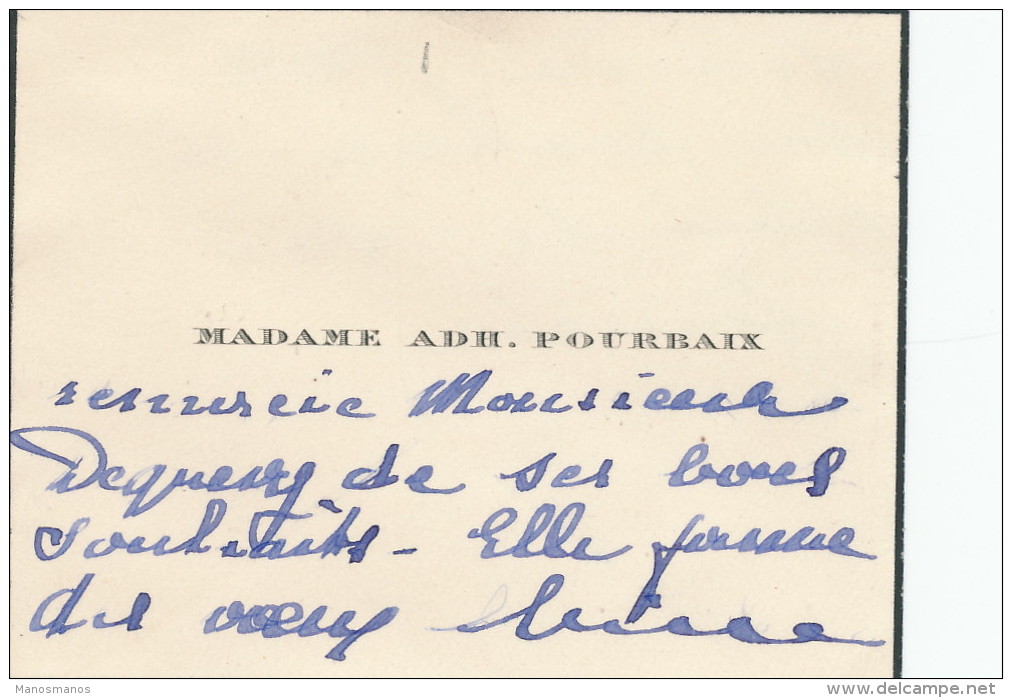 MADAME ADH. POURBAIX
remercie Monsieur
Dequercq de ses bons
souhaits - Elle forme
des vœux
Manosmanos
www.delcampe.net